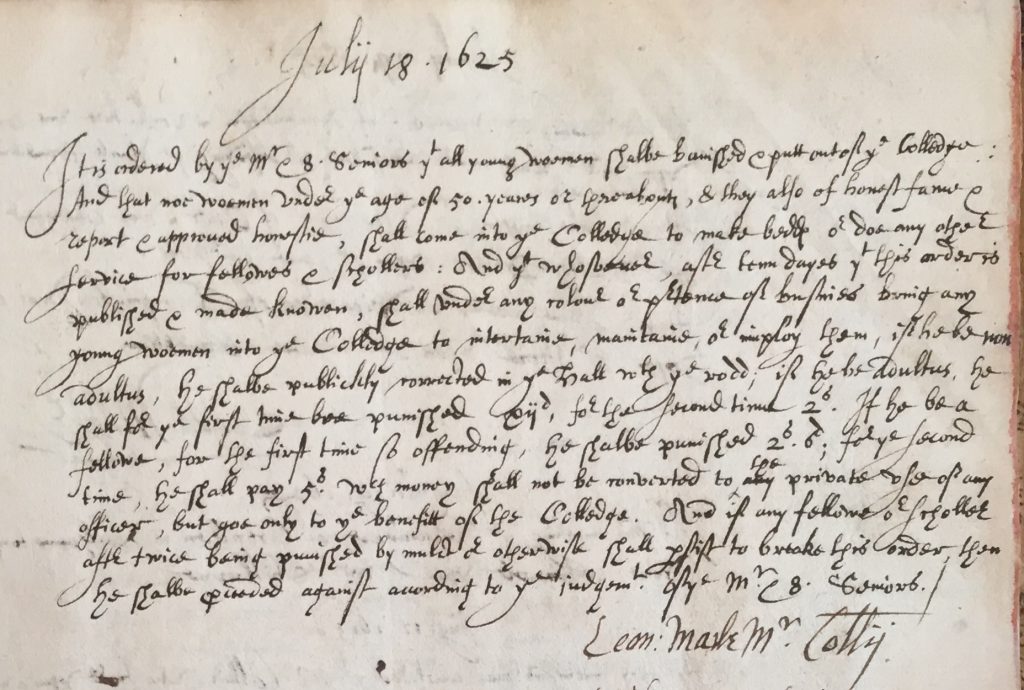 Julij 18. 1625
It is ordered by yᵉ Mʳ & 8. Seniors yᵗ all young woemen shalbe banished & putt out of yᵉ Colledge:
And that noe woemen under yᵉ age of 50. yeares or thereabouts, & they also of honest fame &
report & approved honestie, shall come into yᵉ Colledge to make bedds or doe any other
service for fellowes & schollers: And yᵗ whosoever, after tenn dayes yᵗ this order is
published & made knowen, shall under any colour or pʳtence of business bring any
young woemen into yᵉ Colledge to intertaine, maintaine, or imploy them, if he be non
adultus, he shalbe publickly corrected in yᵉ Hall wᵗʰ yᵉ rodd; if he be Adultus, he
shall for yᵉ first time bee punished xijᵈ, for the second time 2ˢ. If he be a
fellowe, for the first time so offending, he shalbe punished 2ˢ. 6ᵈ; for yᵉ second
time, he shall pay 5ˢ. wᶜʰ money shall not be converted to the private use of any
officer, but goe only to yᵉ benefitt of the Colledge. And if any fellowe or scholler
after twice being punished by mulct or otherwise shall psist to breake this order, then
he shalbe pceeded against according to yᵉ judgemᵗ. of yᵉ Mʳ & 8. Seniors.
Leon: Mawe Mʳ Collij